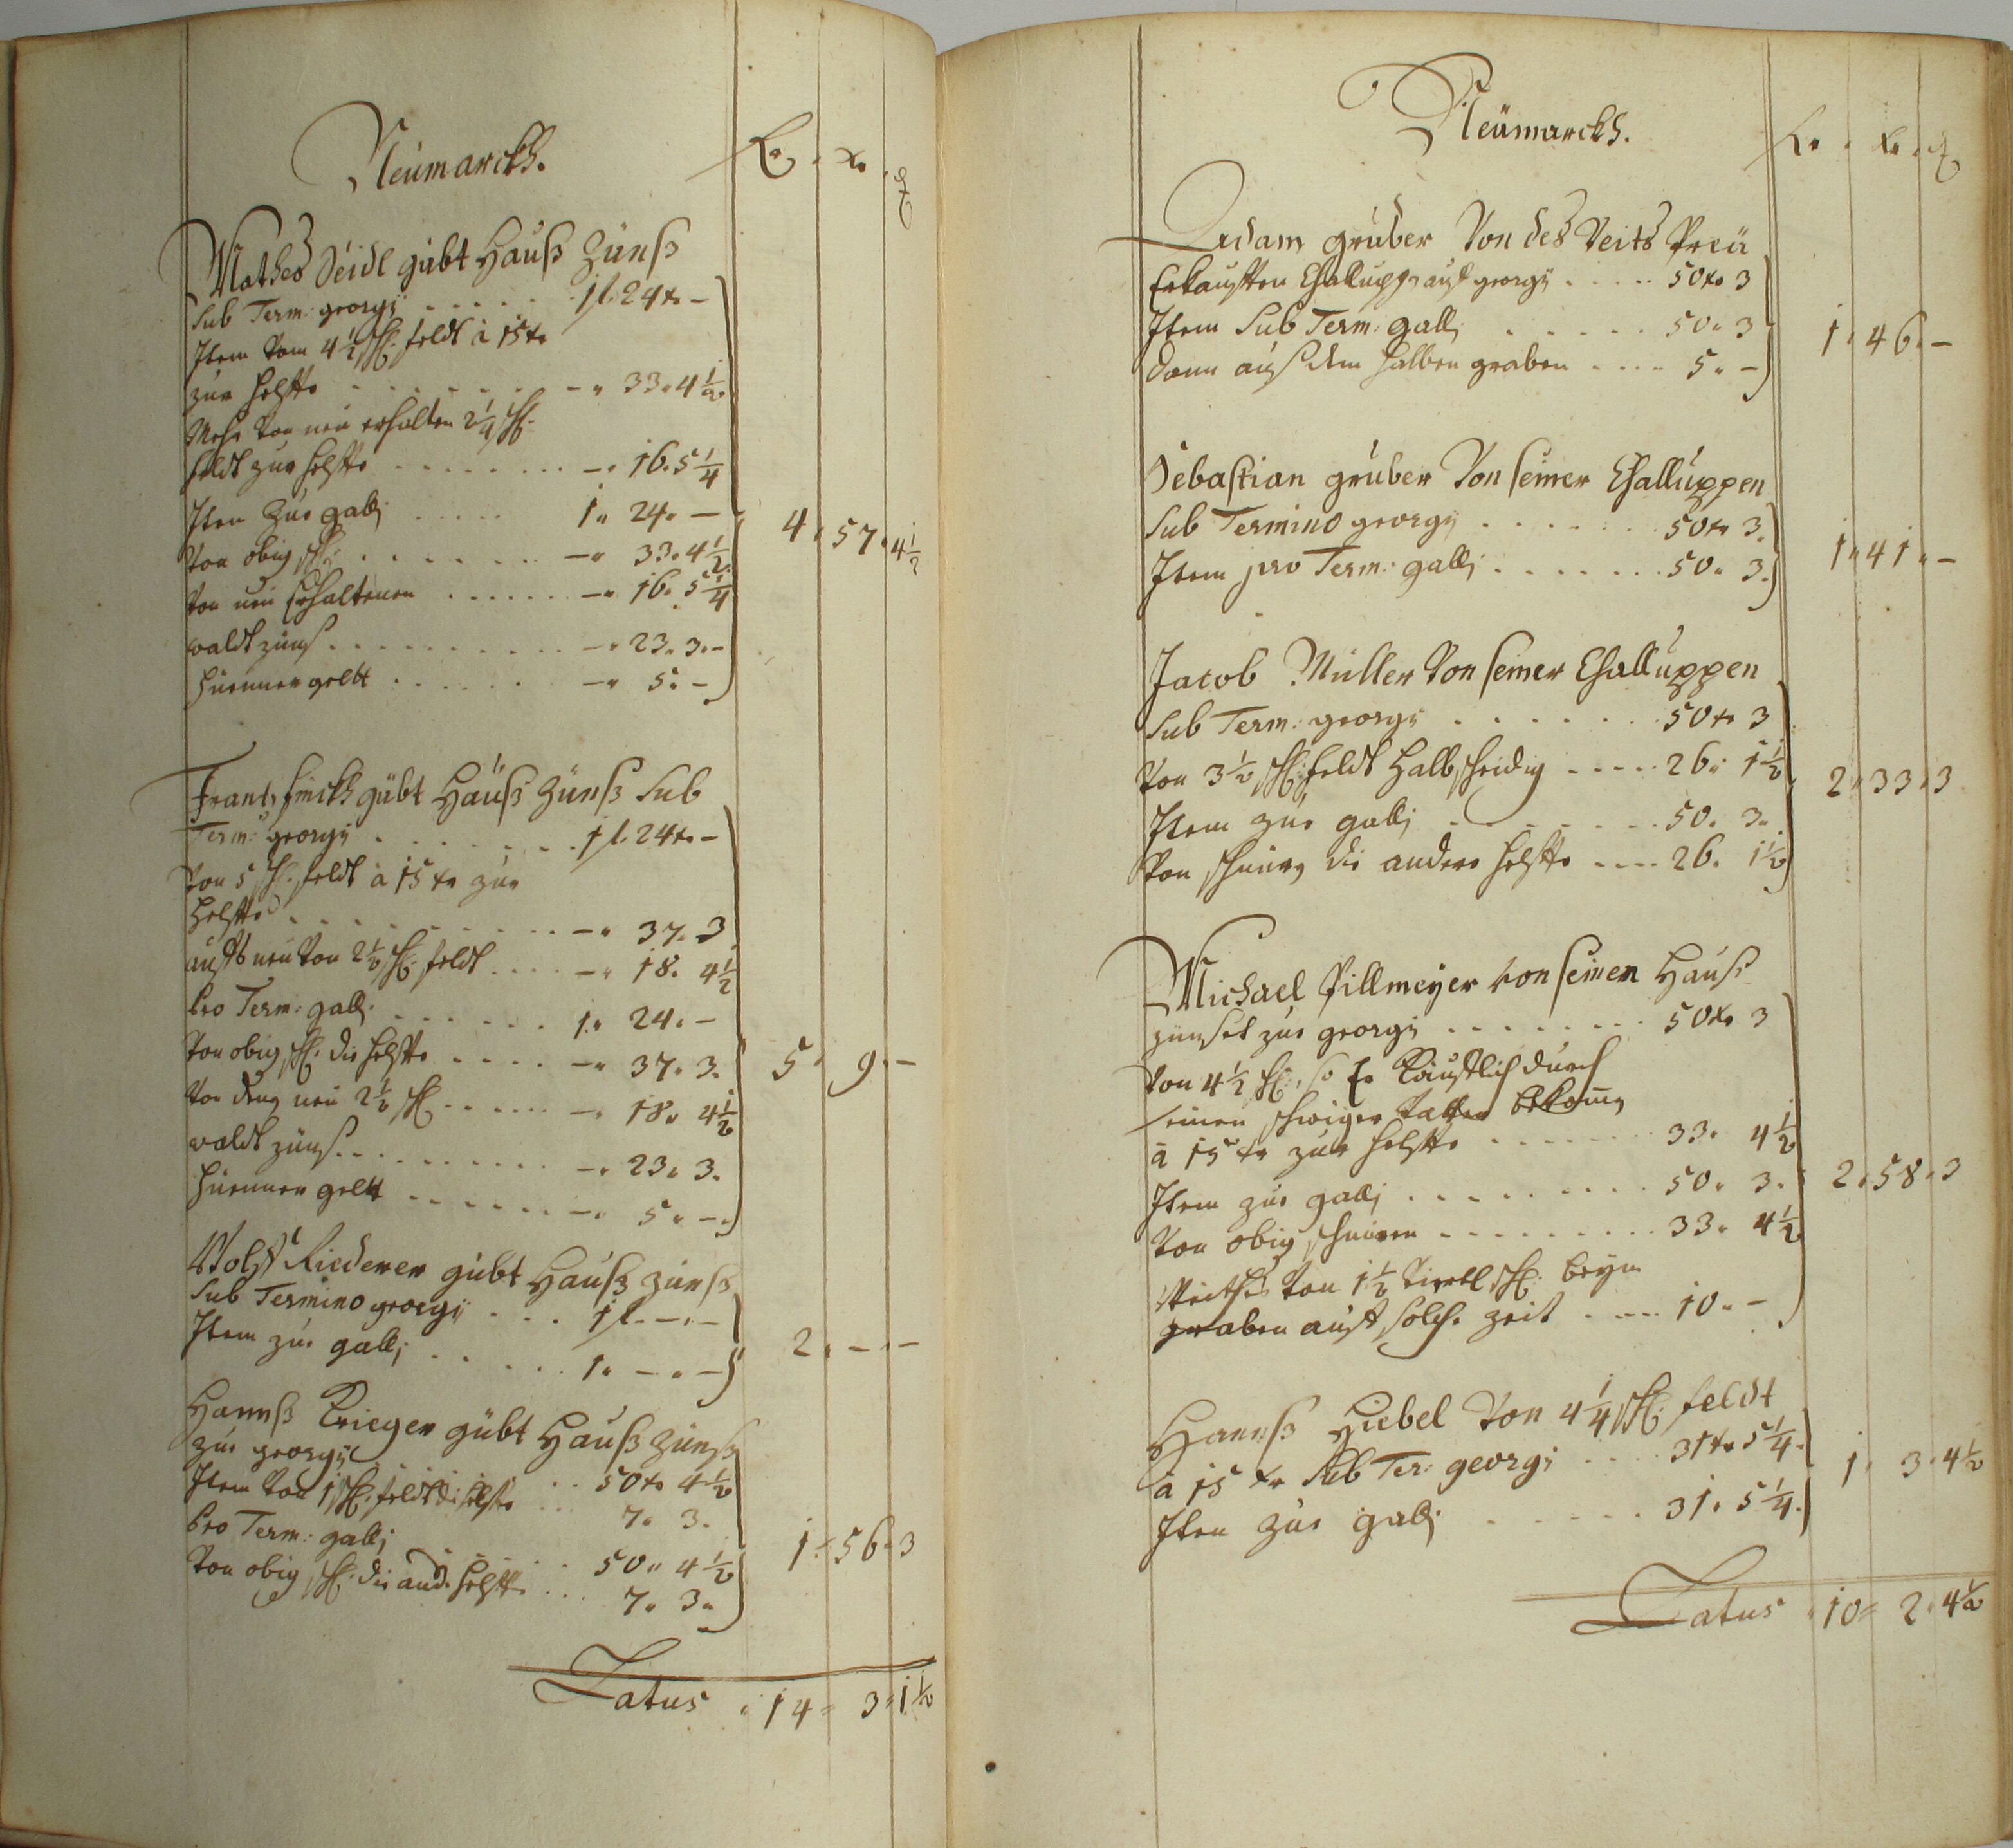 Neümarckh.
fl. xr. d
Mathes Seidl gübt Hauß Zünß
Sub Term: georgÿ . . . . . 1 fl. 24 xr –
Item Vom 4 1/2 sch: feldt à 15 xr
zur helffte . . . . . . . –" 33. 4 1/2
Mehr Von neü erhalten 2 1/4 sch:
feldt zur helffte . . . . . . . –. 16. 5 1/4
Item Zue gallj . . . . . 1" 24. –
Von obig sch: . . . . . . . –" 33. 4 1/2
Von neü Erhaltenen . . . . . . –" 16. 5 1/4
waldt zünß . . . . . . . . . . –. 23. 3. –
Hüennergeltt . . . . . . –" 5. –
4. 57. 4 1/2
Frantz Finckh gübt Hauß Zünß Sub
Term: georgÿ . . . . . . . 1 fl. 24 xr –
Von 5 sch: feldt à 15 xr zur
Helffte . . . . . . . . . –" 37. 3
auffs neü Von 2 1/2 sch: feldt . . . . –" 18. 4 1/2
Pro Term: gallj . . . . . . 1" 24. –
Von obig sch: die helffte . . . . . –" 37. 3.
Von neü 2 1/2 sch: . . . . . . –. 18" 4 1/2
waldt zünß . . . . . . . . . . –. 23. 3.
Hüennergeltt . . . . . . –. 5" –
5. 9. –
Wolff Riederer gübt Hauß zünß
Sub Termino georgÿ . . . 1 fl. –. –
Item zue gallj . . . . . 1. –. –
2. –. –
Hannß Krieger gübt Hauß zünß
zue georgÿ . . . . . . 50 xr 4 1/2
Item Von 1 sch: feldt die helffte . . . 7. 3.
Pro Term: gallj . . . . . . 50" 4 1/2
Von obig sch: die and: helffte . . . 7. 3.
1. 56. 3
Latus . 14 = 3 = 1 1/2
Neümarckh.
fl. xr. d
Adam gruber Von des Veits Preü
Erkaufften Challuppen auf georgÿ . . . . . 50 xr 3
Item Sub Term: gallj . . . . . . 50" 3
Dann auß dem halben graben . . . . 5. –
1. 46. –
Sebastian gruber Von seiner Challuppen
Sub Termino georgÿ . . . . . . . 50 xr 3.
Item pro Term: gallj . . . . . . . 50" 3.
1" 41. –
Jacob Müller Von seiner Challuppen
Sub Term: georgÿ . . . . . . . 50 xr 3
Von 3 1/2 sch: feldt Halbscheidig . . . . . 26. 1 1/2
Item zue gallj . . . . . . . . 50. 3.
Von die andere helffte . . . . 26. 1 1/2
2. 33. 3
Michael Pillmeÿer Von seinen Hauß
zünset zue georgÿ . . . . . . . . 50 xr 3
Von 4 1/2 sch: so Er Käufflich durch
seinen schwiger Vatter bekomen
à 15 xr zur helffte . . . . . . . 33. 4 1/2
Item zue gallj . . . . . . . . . 50. 3.
Von obig . . . . . . . . . 33. 4 1/2
Von 1 1/2 Viertl sch: beÿm
graben auff solche zeit . . . . 10. –
2. 58. 3
Hannß Hiebel Von 4 1/4 sch: feldt
à 15 xr Sub Ter: georgj . . . . 31 xr 5 1/4
Item zue gallj . . . . . . . 31. 5 1/4.
1. 3. 4 1/2
Latus . 10 = 2. 4 1/2